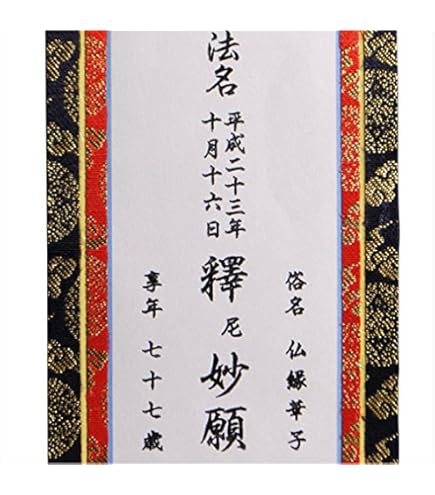 法名
平成二十三年
十月十六日
釋尼妙願
俗名 仏縁華子
享年 七十七歳